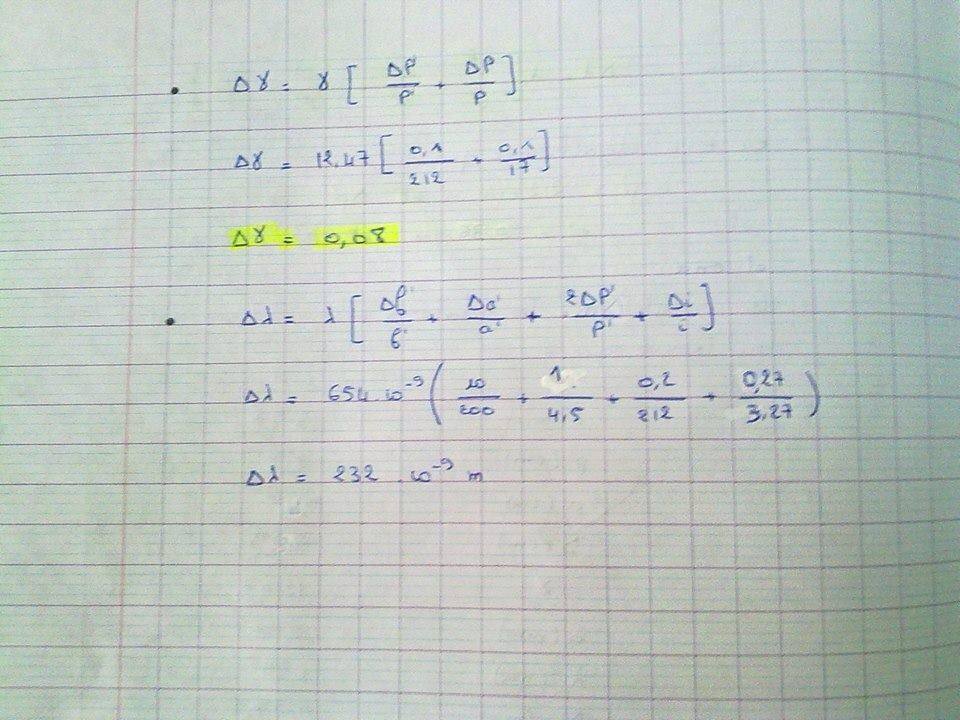 • Δγ = γ [ ΔP' / P' + ΔP / P ]
Δγ = 12.47 [ 0,1 / 212 + 0,1 / 17 ]
Δγ = 0,08
• Δλ = λ [ Δf' / f' + Δa' / a' + 2ΔP' / P' + Δi / i ]
Δλ = 654 10⁻⁹ ( 10 / 200 + 1 / 4,5 + 0,2 / 212 + 0,27 / 3,27 )
Δλ = 232 . 10⁻⁹ m